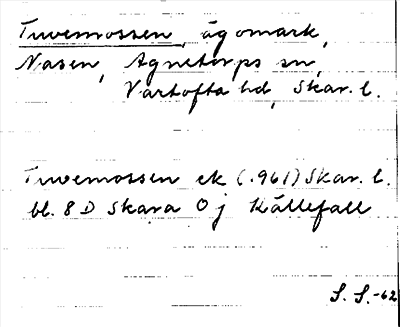 Tuvemossen, ägomark,
Nasen, Agnetorps sn,
Vartofta hd, Skar. l.
Tuvemossen ek (.961) Skar. l.
bl. 8 D Skara 0 j Källefall
S. S.-62